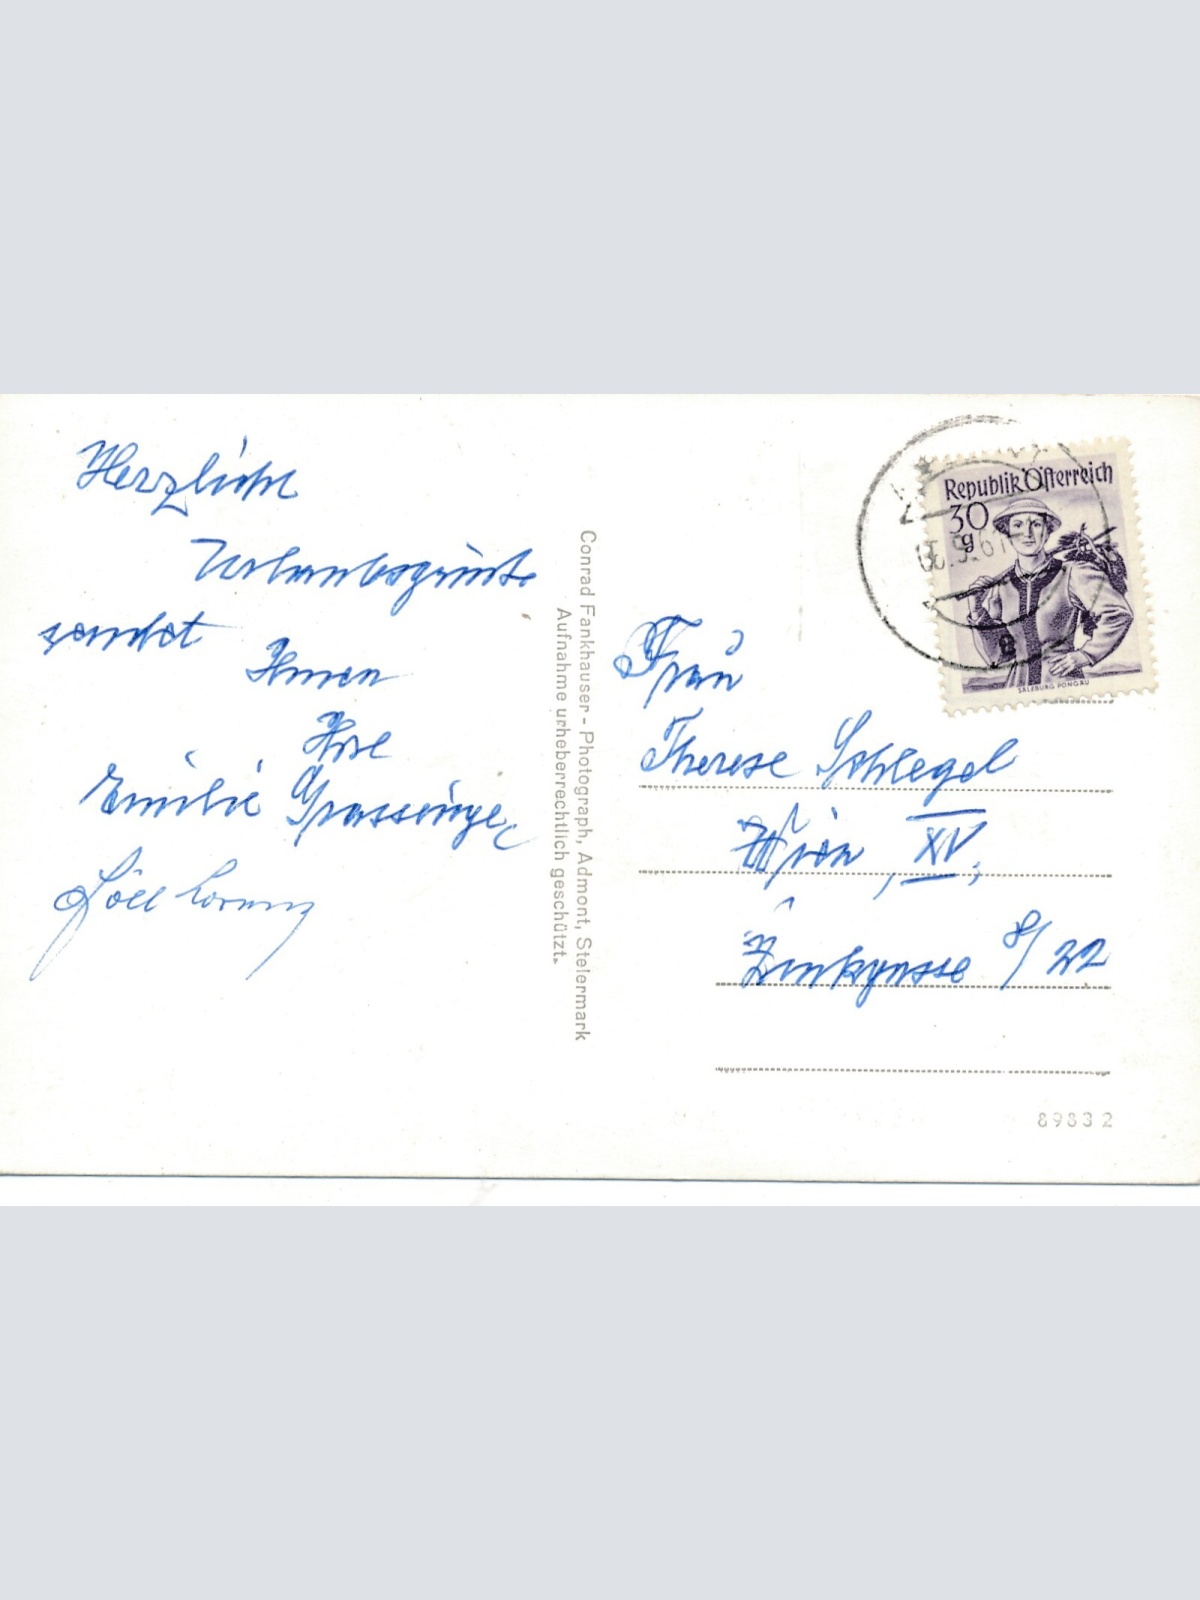 Herzliche
Urlaubsgrüße
sendet
Ihnen
Ihre
Emilie Grassinger
Conrad Fankhauser - Photograph, Admont, Steiermark
Aufnahme urheberrechtlich geschützt.
Republik Österreich
30
g
SALZBURG PONGAU
Frau
Therese Schlegel
Wien, XV,
Zinkgasse 8/22
89832